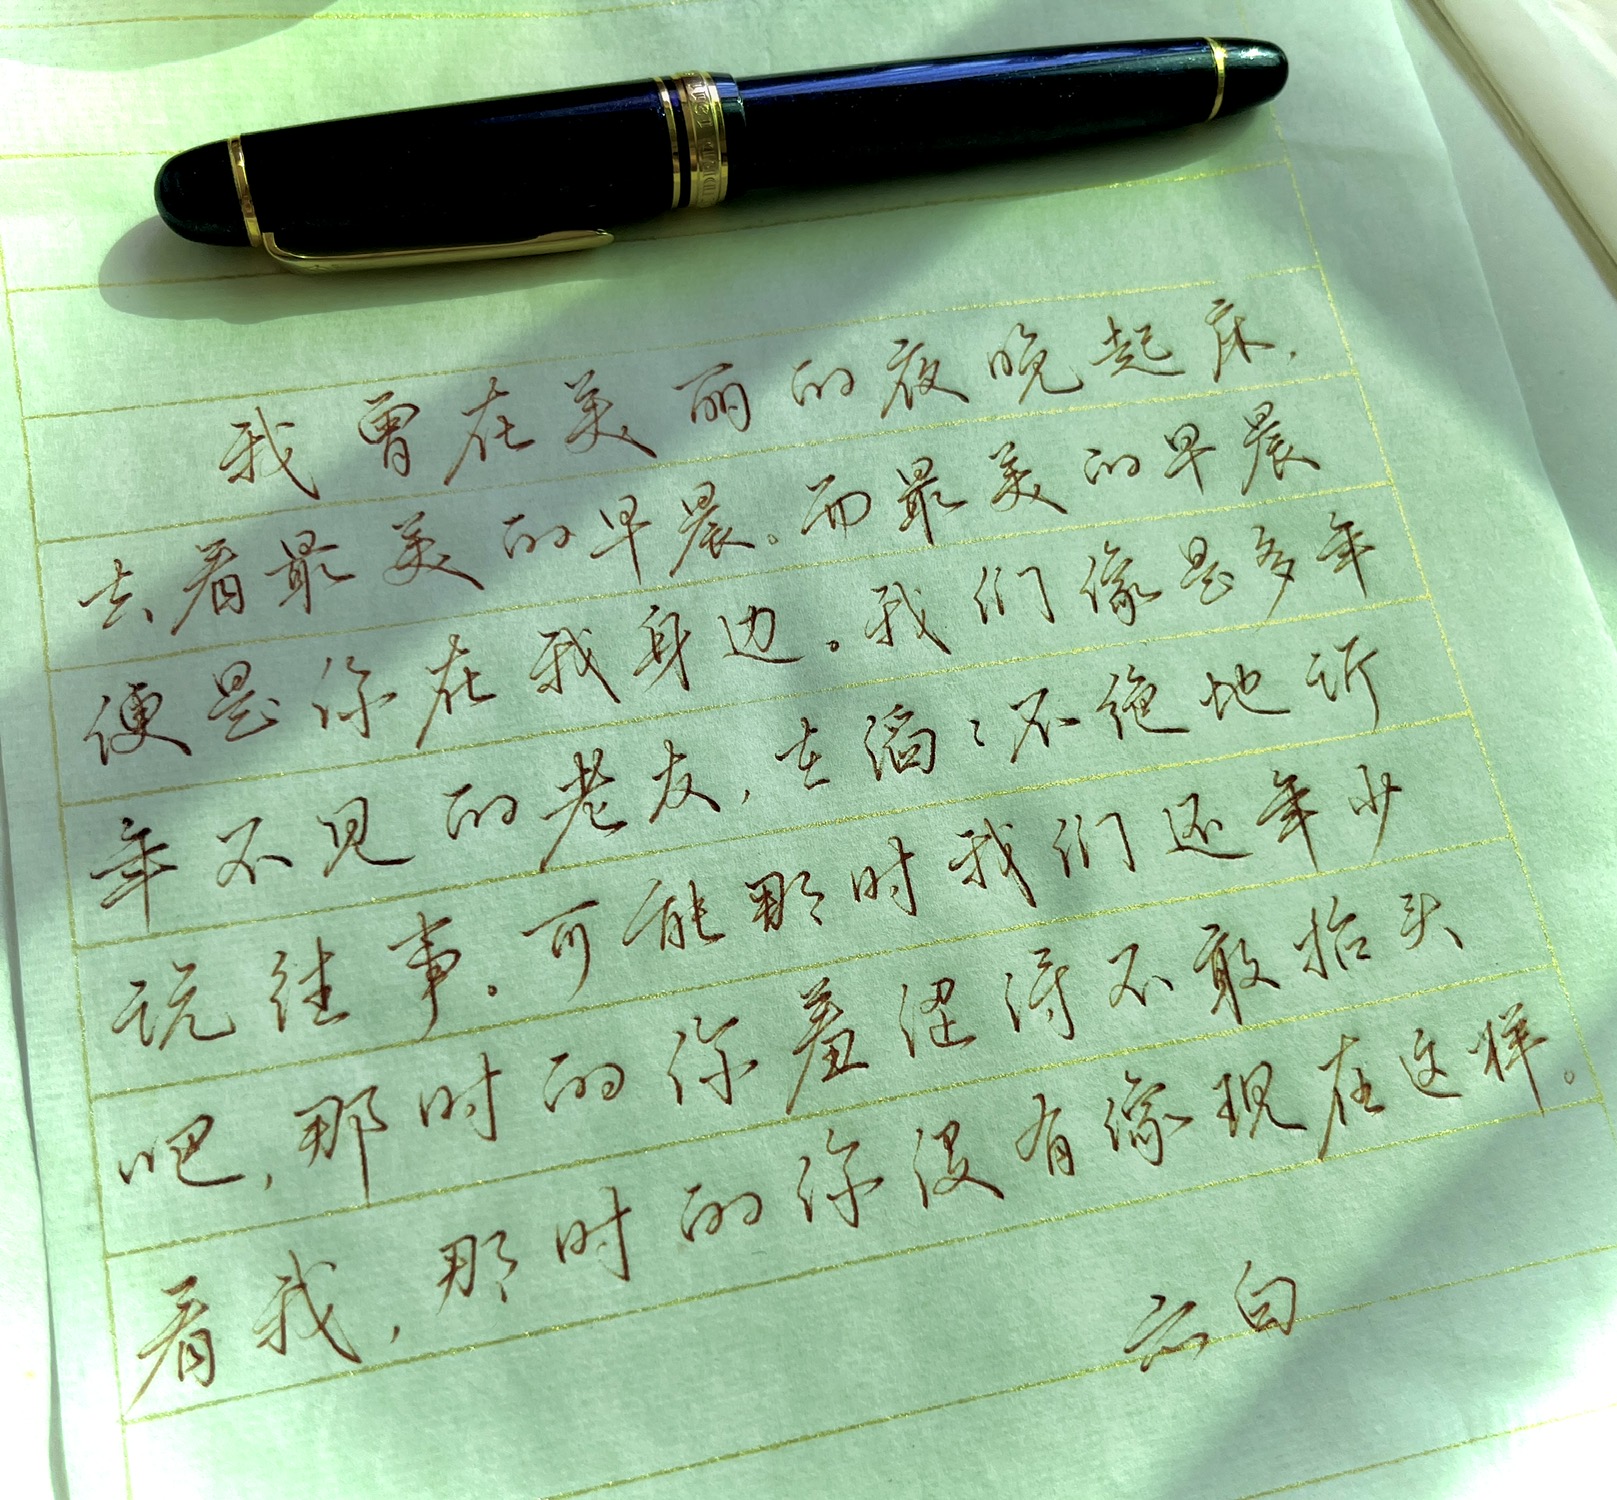 我曾在美丽的夜晚起床，
去看最美的早晨。而最美的早晨
便是你在我身边。我们像是多年
年不见的老友，在滔滔不绝地诉
说往事。可能那时我们还年少
吧，那时的你羞涩得不敢抬头
看我，那时的你没有像现在这样。
云白